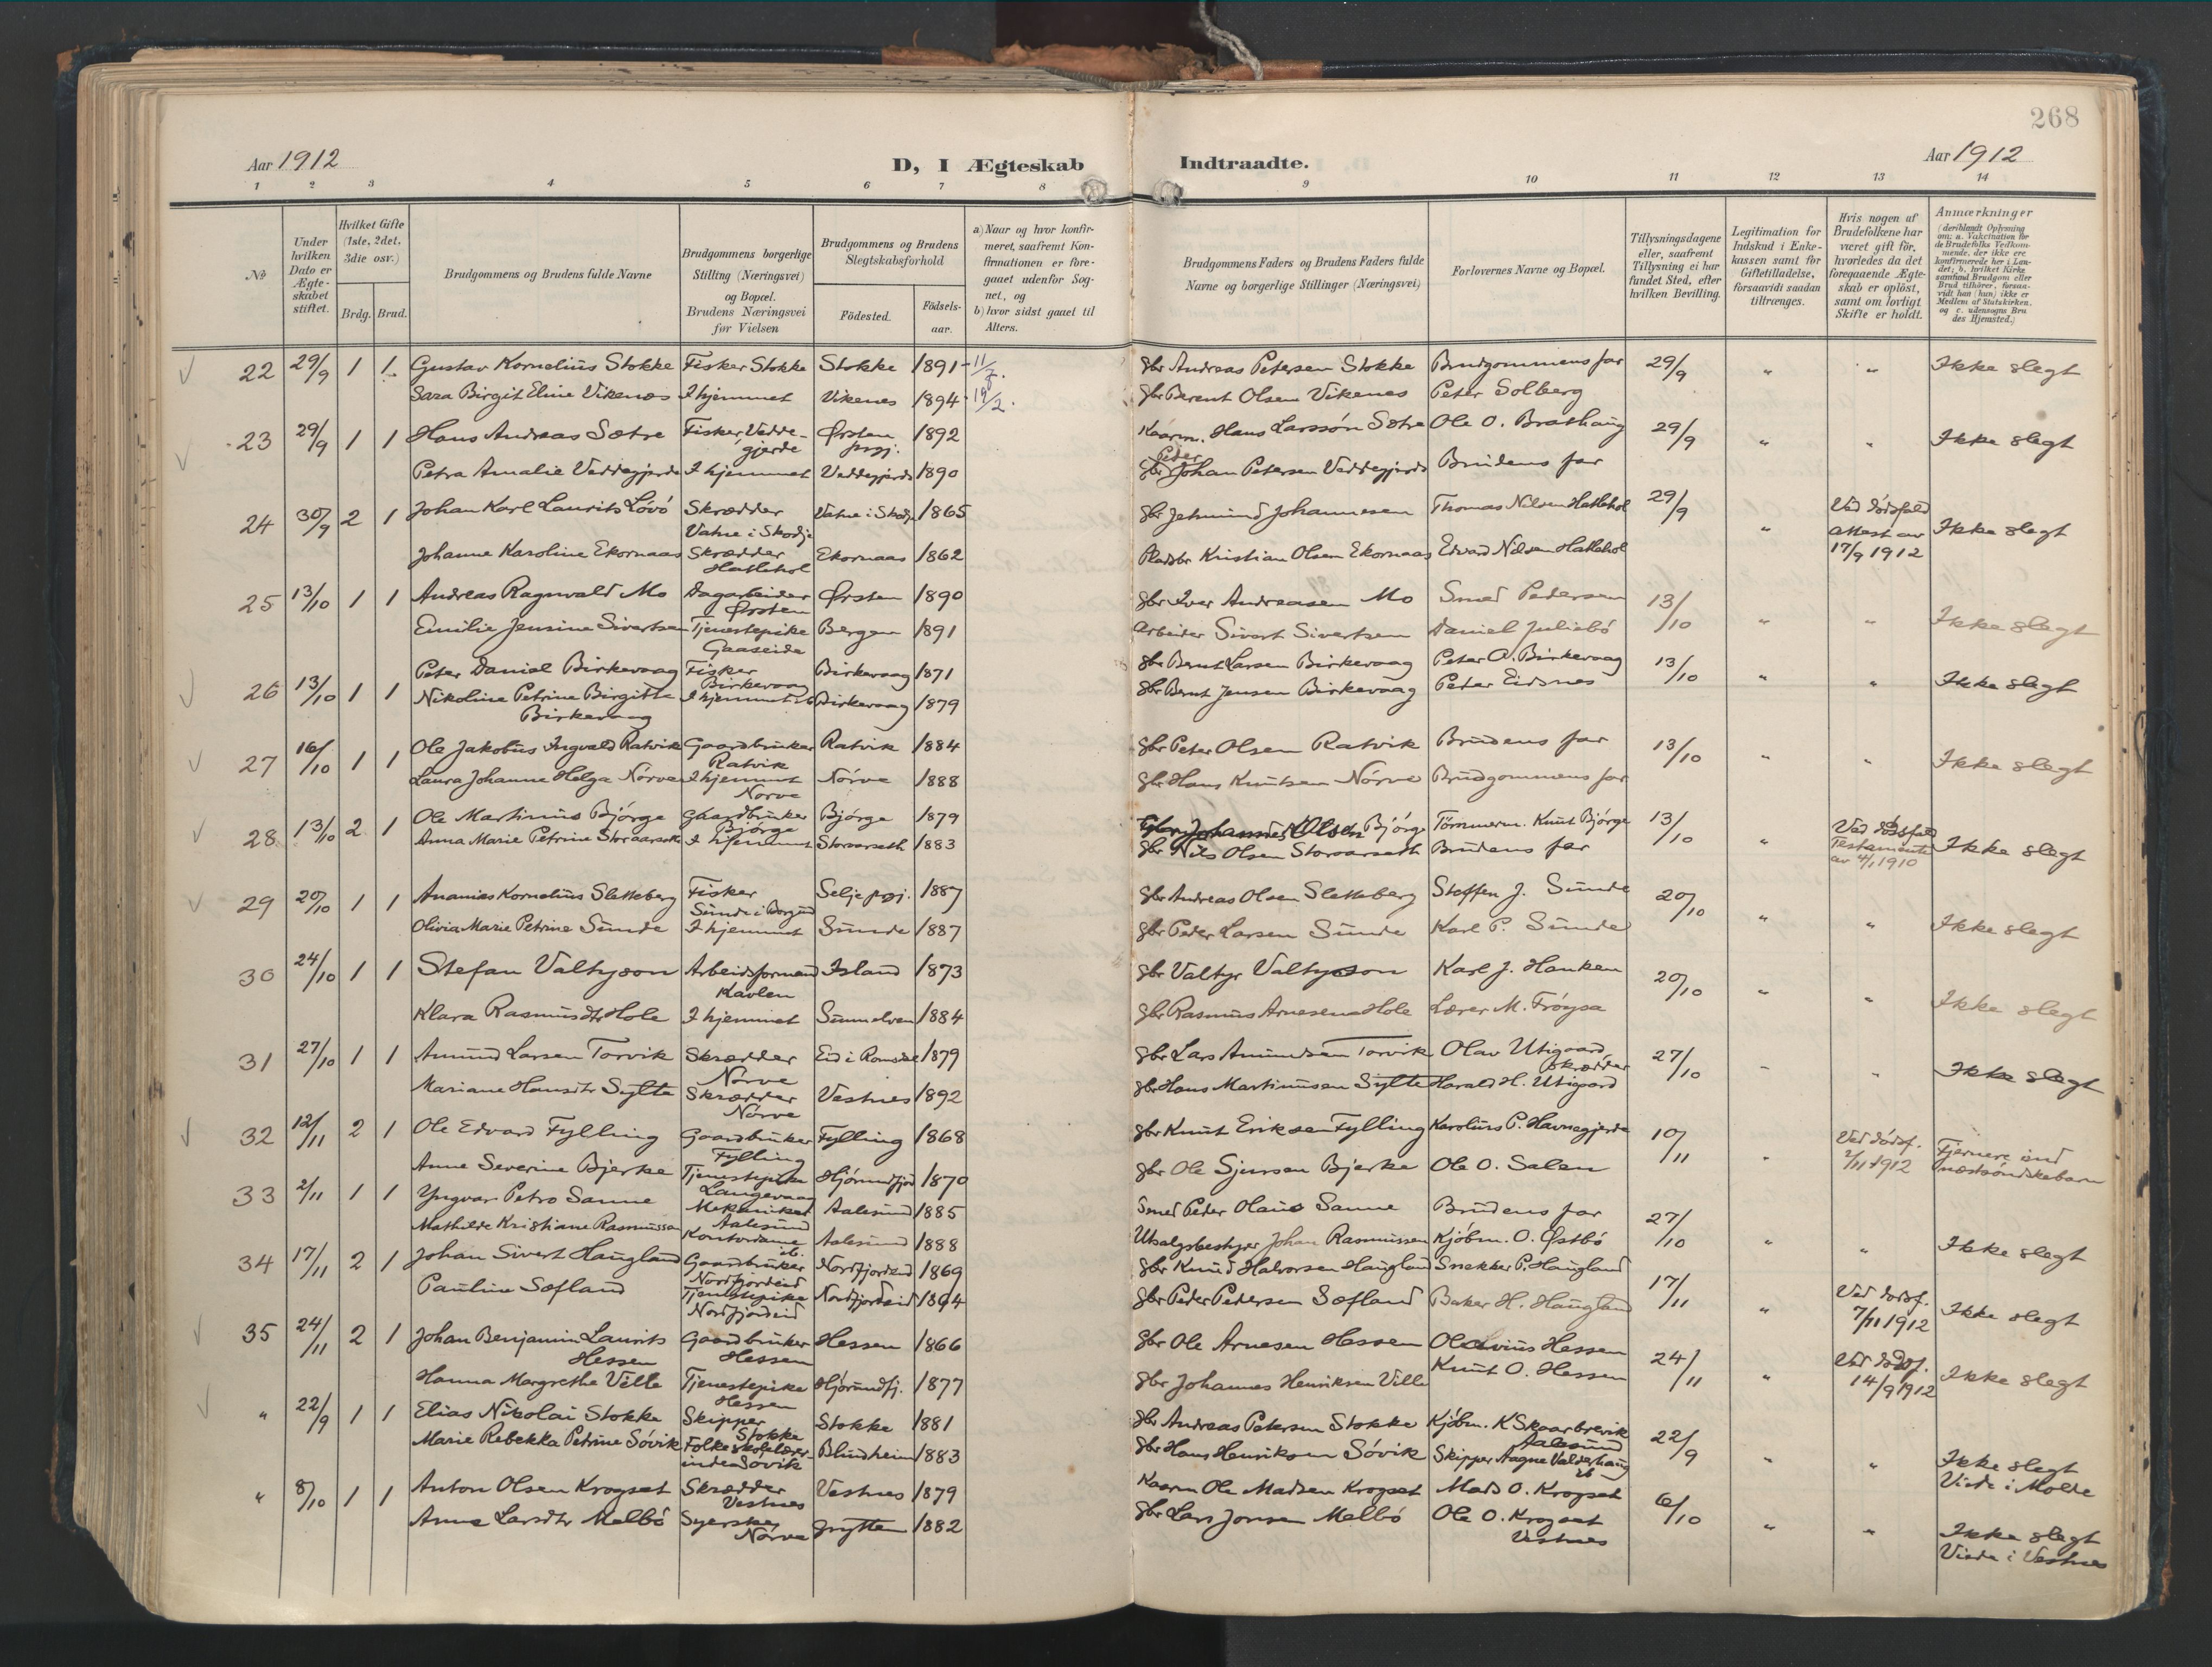 268
Aar 1912
D, I Ægteskab Indtraadte.
Aar 1912
1 2 3 4 5 6 7 8 9 10 11 12 13 14
№
Under hvilken Dato er Ægteskabet stiftet.
Hvilket Gifte (1ste, 2det, 3die osv.)
Brdg. Brud.
Brudgommens og Brudens fulde Navne
Brudgommens borgerlige Stilling (Næringsvei) og Bopæl. Brudens Næringsvei før Vielsen
Brudgommens og Brudens Slegtskabsforhold
Födested.
Födsels-aar.
a) Naar og hvor konfirmeret, saafremt Konfirmationen er foregaaet udenfor Sognet, og b) hvor sidst gaaet til Alters.
Brudgommens Faders og Brudens Faders fulde Navne og borgerlige Stillinger (Næringsvei)
Forlovernes Navne og Bopæl.
Tillysningsdagene eller, saafremt Tillysning ei har fundet Sted, efter hvilken Bevilling.
Legitimation for Indskud i Enkekassen samt for Giftetilladelse, forsaavidt saadan tiltrænges.
Hvis nogen af Brudefolkene har været gift för, hvorledes da det foregaaende Ægteskab er oplöst, samt om lovligt Skifte er holdt.
Anmærkninger (deriblandt Oplysning om: a. Vakcination for de Brudefolks Vedkommende, der ikke ere konfirmerede her i Landet; b. hvilket Kirkesamfund Brudgom eller Brud tilhörer, forsaavidt han (hun) ikke er Medlem af Statskirken, og c. udensogns Brudes Hjemsted.)
22 29/9 1 1 Gustav Kornelius Stokke Fisker Stokke Stokke 1891 11/7. gbr Andreas Petersen Stokke Brudgommens far 29/9 " " Ikke slegt
Sara Birgit Eline Vikenes I hjemmet Vikenes 1894 19/2. gbr Berent Olsen Vikenes Peter Solberg
23 29/9 1 1 Hans Andreas Sætre Fisker Vedde-gjerde Ørsten prgj. 1892 Kaarm. Hans Larssön Sætre Ole O. Brathaug 29/9 " " Ikke slegt
Petra Amalie Veddegjerde I hjemmet Veddegjerde 1890 gbr Peder Johan Petersen Veddegjerde Brudens far
24 30/9 2 1 Johan Karl Laurits Lövö Skrædder Vatne i Skodje Vatne i Skodje 1865 gbr Jetmund Johannesen Thomas Nilsen Hatlehol 29/9 " Ved dödsfald Attest av 17/9 1912 Ikke slegt
Johanne Karoline Ekornaas Skrædder Hatlehol Ekornaas 1862 Pladsbr Kristian Olsen Ekornaas Edvard Nilsen Hatlehol
25 13/10 1 1 Andreas Ragnvald Mo Dagarbeider Ørsten Ørsten 1890 gbr Iver Andreasen Mo Smed Pedersen 13/10 " " Ikke slegt
Emilie Jensine Sivertsen Tjenestepike Gaaseide Bergen 1891 Arbeider Sivert Sivertsen Daniel Juliebö
26 13/10 1 1 Peter Daniel Birkevaag Fisker Birkevaag Birkevaag 1871 gbr Bernt Larsen Birkevaag Peter A. Birkevaag 13/10 " " Ikke slegt
Nikoline Petrine Birgitte Birkevaag I hjemmet Birkevaag 1879 gbr Bernt Jensen Birkevaag Peter Eidsnes
27 16/10 1 1 Ole Jakobus Ingvald Ratvik Gaardbruker Ratvik Ratvik 1884 gbr Peter Olsen Ratvik Brudens far 13/10 " " Ikke slegt
Laura Johanne Helga Nörve I hjemmet Nörve Nörve 1888 gbr Hans Knutsen Nörve Brudgommens far
28 13/10 2 1 Ole Martinus Björge Gaardbruker Björge Björge 1879 Johannes Olsen Björge Tömmerm. Knut Björge 13/10 " Ved dödsfald Testamente av 4/1 1910 Ikke slegt
Anna Marie Petrine Storaarseth I hjemmet Storaarseth 1883 gbr Nils Olsen Storaarseth Brudens far
29 20/10 1 1 Ananias Kornelius Sletteberg Fisker Sunde i Borgund Selje prgj. 1887 gbr Andreas Olsen Sletteberg Steffen J. Sunde 20/10 " " Ikke slegt
Olivia Marie Petrine Sunde I hjemmet Sunde 1887 gbr Peder Larsen Sunde Karl P. Sunde
30 24/10 1 1 Stefan Valtyson Arbeidsformand Kavlen Island 1873 gbr Valtyr Valtysson Karl J. Hanken 20/10 " " Ikke slegt
Klara Rasmusdtr Hole I hjemmet Sunnelven 1884 gbr Rasmus Arnesen Hole Lærer M. Fröysa
31 27/10 1 1 Amund Larsen Torvik Skrædder Nörve Eid i Romsdal 1879 gbr Lars Amundsen Torvik Olav Utigaard Skrædder 27/10 " " Ikke slegt
Mariane Hansdtr Sylte Skrædder Nörve Vestnes 1892 gbr Hans Martinussen Sylte Harald H. Utigaard
32 12/11 2 1 Ole Edvard Fylling Gaardbruker Fylling Fylling 1868 gbr Knut Eriksen Fylling Karolius P. Havnegjerde 10/11 " Ved dödsf. 2/11 1912 Fjernere end næstsöndskebarn
Anne Severine Bjerke Tjenestepike Langevaag Hjörundfjord 1870 gbr Ole Sjursen Bjerke Ole O. Salen
33 2/11 1 1 Yngvar Petro Sanne Mekaniker Aalesund Aalesund 1885 Smed Peder Olaus Sanne Brudens far 27/10 " " Ikke slegt
Mathilde Kristiane Rasmussen Kontordame ib. Aalesund 1888 Utsalgsbestyrer Johan Rasmussen Kjöbm. O. Østbö
34 17/11 2 1 Johan Sivert Haugland Gaardbruker Nordfjordeid Nordfjordeid 1869 gbr Knud Halvorsen Haugland Snekker P. Haugland 17/11 " Ved dödsf. 7/11 1912 Ikke slegt
Pauline Sæfland Tjenestepike Nordfjordeid Nordfjordeid gbr Peder Pedersen Sæfland Baker H. Haugland
35 24/11 2 1 Johan Benjamin Laurits Hessen Gaardbruker Hessen Hessen 1866 gbr Ole Arnesen Hessen Hessen 24/11 " Ved dödsf. 14/9 1912 Ikke slegt
Hanna Margrethe Ville Tjenestepike Hessen Hjörundfj. 1877 gbr Johannes Henriksen Ville Knut O. Hessen
" 22/9 1 1 Elias Nikolai Stokke Skipper Stokke Stokke 1881 gbr Andreas Petersen Stokke Kjöbm. K Skaarbrevik Aalesund 22/9 " " Ikke slegt Viede i Molde
Marie Rebekka Petrine Sövik Folkeskolelærerinde Sövik Blindheim 1883 gbr Hans Henriksen Sövik Skipper Aagne Valderhaug ib
" 8/10 1 1 Anton Olsen Krogset Skrædder Vestnes Vestnes 1879 Kaarm Ole Madsen Krogset Mads O. Krogset 6/10 " " Ikke slegt Viede i Vestnes
Anne Larsdtr Melbö Syerske Nörve Grytten 1882 gbr Lars Jonsen Melbö Ole O. Krogset Vestnes